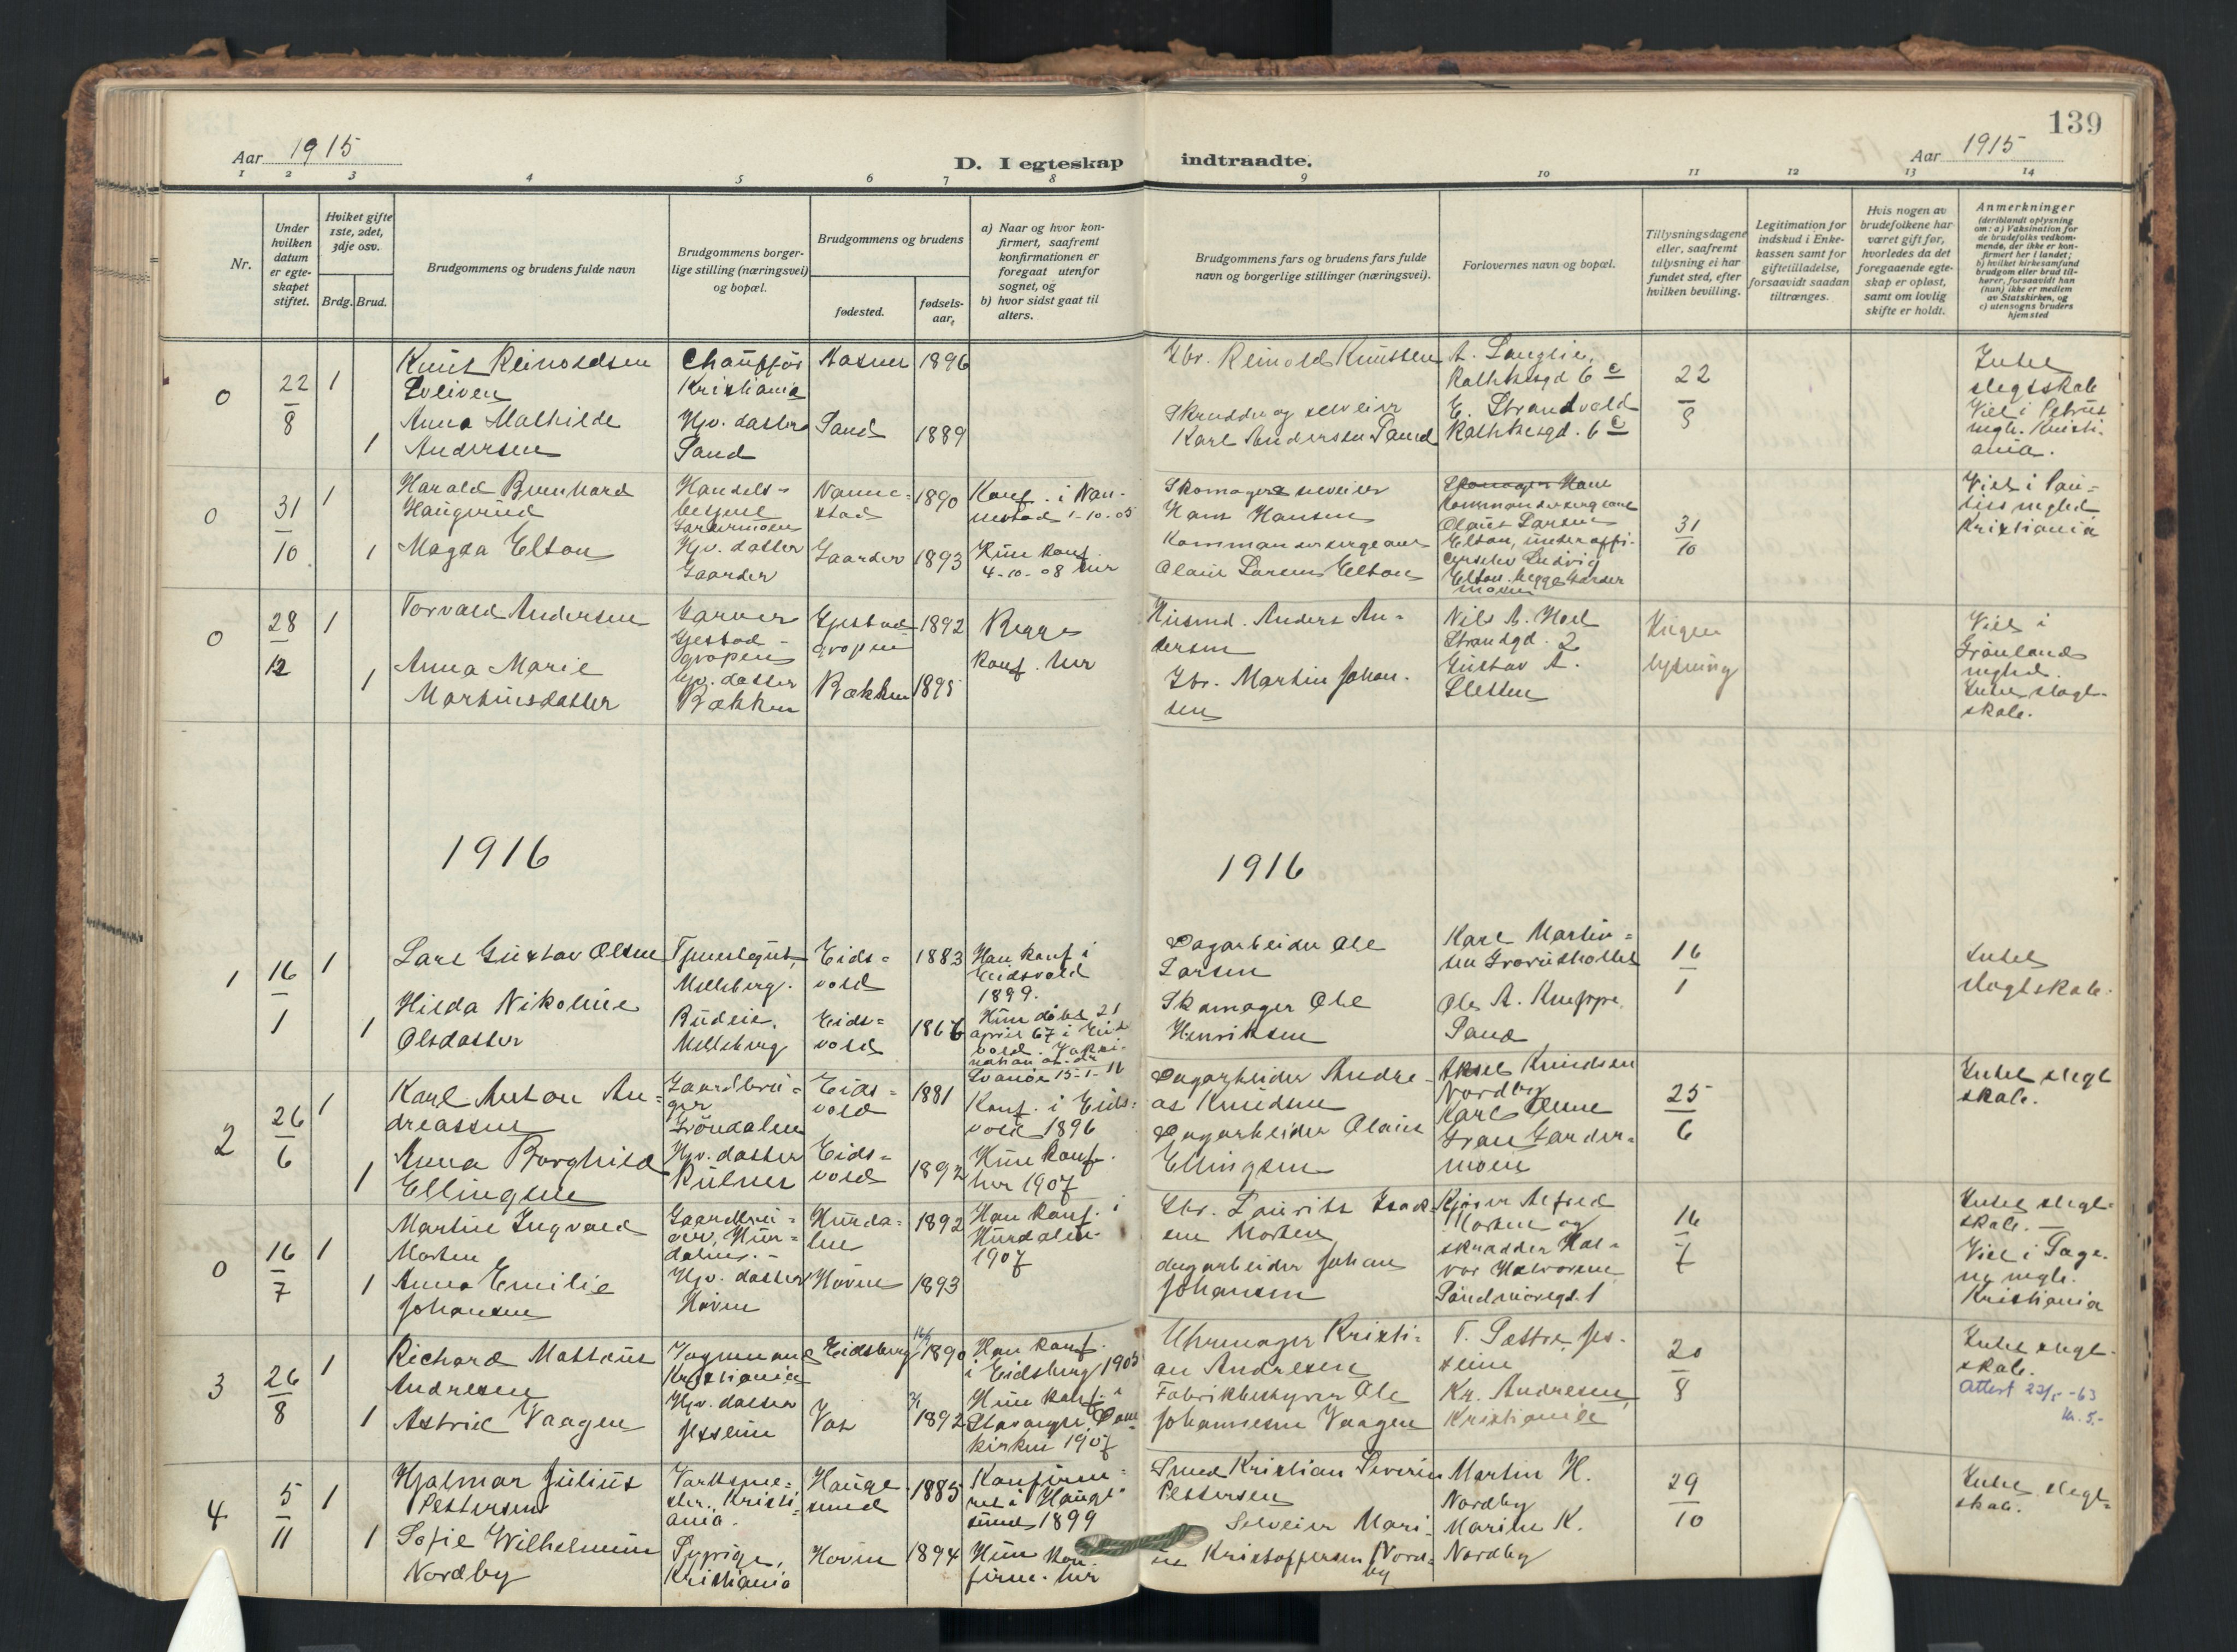 139
Aar 1915
D. I egteskap indtraadte.
Aar 1915
1 2 3 4 5 6 7 8 9 10 11 12 13 14
Nr.
Under hvilken datum er egte-skapet stiftet.
Hviket gifte 1ste, 2det, 3dje osv.
Brdg. Brud.
Brudgommens og brudens fulde navn
Brudgommens borger-lige stilling (næringsvei) og bopæl.
Brudgommens og brudens
fødested.
fødsels-aar.
a) Naar og hvor kon-firmert, saafremt konfirmationen er foregaat utenfor sognet, og
b) hvor sidst gaat til alters.
Brudgommens fars og brudens fars fulde navn og borgerlige stillinger (næringsvei).
Forlovernes navn og bopæl.
Tillysningsdagene eller, saafremt tillysning ei har fundet sted, efter hvilken bevilling.
Legitimation for indskud i Enke-kassen samt for giftetilladelse, forsaavidt saadan tiltrænges.
Hvis nogen av brudefolkene har været gift før, hvorledes da det foregaaende egte-skap er opløst, samt om lovlig skifte er holdt.
Anmerkninger
(deriblandt oplysning om: a) Vaksination for de brudefolks vedkom-mende, der ikke er kon-firmert her i landet; b) hvilket kirkesamfund brudgom eller brud til-hører, forsaavidt han (hun) ikke er medlem av Statskirken, og c) utensogns bruders hjemsted
0
22/8
1
Knut Reinoldsen
Chauffør
Kristiania
1896
Gbr. Reinold Knutsen
A. Langlie,
Rathkesgd 6 c
22/8
Intet
slegtskab
Anna Mathilde
Andersen
1
Gjv. datter
Sand
Sand
1889
Skrædder og selveier
Karl Andersen Sand
E. Strandvold
Rathkesgd. 6 c
Viet i Petrus
mgh. Kristi-
ania.
0
31/10
1
Harald Bernhard
Haugerud
Handels-
betjent
Gardermoen
Nanne-
stad
1890
Konf. i Nan-
nestad 1-10-05
Skomager & selveier
Hans Hansen
Kommandersergeant
Olaus Larsen
31/10
Viet i Pau-
lus mghed
Kristiania
1
Magda Elton
Gjv. datter
Gaarder
Gaarder
1893
Hun konf.
4-10-08 her
Kommandersergeant
Olaus Larsen Elton
Elton, underoffi-
cerselev Ludvig
Elton. begge Garder
moen
0
28/12
1
Torvald Andersen
Garver
Gjestad-
gropen
Gjestad-
gropen
1892
Begge
konf. her
Husmd. Anders An-
dersen
Nils A. Moel
Strandgd. 2
Ingen
lysning
Viet i
Grønlands
mghed.
Intet slegt-
skab.
1
Anna Marie
Martinsdatter
Gjv. datter
Bækken
Bækken
1895
Gbr. Martin Johan-
sen
Gustav A.
Sletten
1916
1916
1
16/1
1
Lars Gustav Olsen
Tjenestegut,
Melleberg.
Eids-
vold
1883
Han konf i
Eidsvold
1899.
Dagarbeider Ole
Larsen
Karl Martin-
sen
16/1
Intet
slegtskab.
1
Hilda Nikoline
Olsdatter
Budeie,
Melleberg
Eids-
vold
1867
Hun døbt 21
april 67 i Eids
vold. Vakci-
nation
15-1-16
Skomager Ole
Henriksen
Ole A. Kneppe
Sand
2
26/6
1
Karl Anton An-
dreassen
Gaardbru-
ger
Grøndalen
Eids-
vold
1881
Konf. i Eids-
vold 1896
Dagarbeider Andre-
as Knudsen
Aksel Knudsen
Nordby
25/6
Intet slegt
skab.
1
Anna Borghild
Ellingsen
Gjv. datter
Eids-
vold
1892
Hun konf.
her 1907
Dagarbeider Olaus
Ellingsen
Karl Olsen
Gran Garder-
moen
0
16/7
1
Martin Ingvald
Morten
Gaardbru-
ger, Hur-
dalen.-
Hurda-
len
1892
Han konf. i
Hurdalen
1907
Gbr. Laurits Isak-
sen Morten
Kjører Alfred
Morten og
16/7
Intet slegt-
skab. —
Viet i Fage-
ng mgh.
Kristiania
1
Anna Emilie
Johansen
Gjv. datter
Hovin
Hovin
1893
dagarbeider Johan
Johansen
skrædder Hal-
vor Halvorsen
Søndmøregd. 1
3
26/8
1
Richard Matteus
Andresen
Vognmand
Kristiania
Eidsberg
1890
Han konf.
i Eidsberg 1905
Uhrmager Kristi-
an Andresen
T. Sættre Jes-
seim
20/8
Intet slegt-
skab.
Attest 23/5-63
kr. 5.-
1
Astrid Vaagen
Gjv. datter
Jesseim
1892
Hun konf. i
Stavanger Dom
kirken 1907
Fabrikbestyrer Ole
Johannesen Vaagen
Kr. Andresen,
Kristiania
4
5/11
1
Hjalmar Julius
Pettersen
Verksme-
ster, Kristi-
ania.
Hauge
sund
1885
Konfirme-
ret i Hauge-
sund 1899
Smed Kristian Severin
Pettersen
Martin H.
Nordby
29/10
Intet slegt-
skab.
1
Sofie Wilhelmine
Nordby
Sypige,
Kristiania
Hovin
1894
Hun kon-
firm. her
Selveier Mari-
us Kristoffersen Nord-
by
Marius K.
Nordby